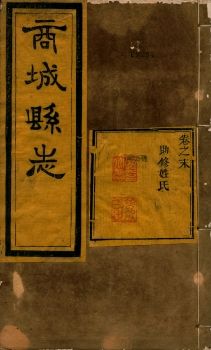 商城縣志
卷之末
助修姓氏